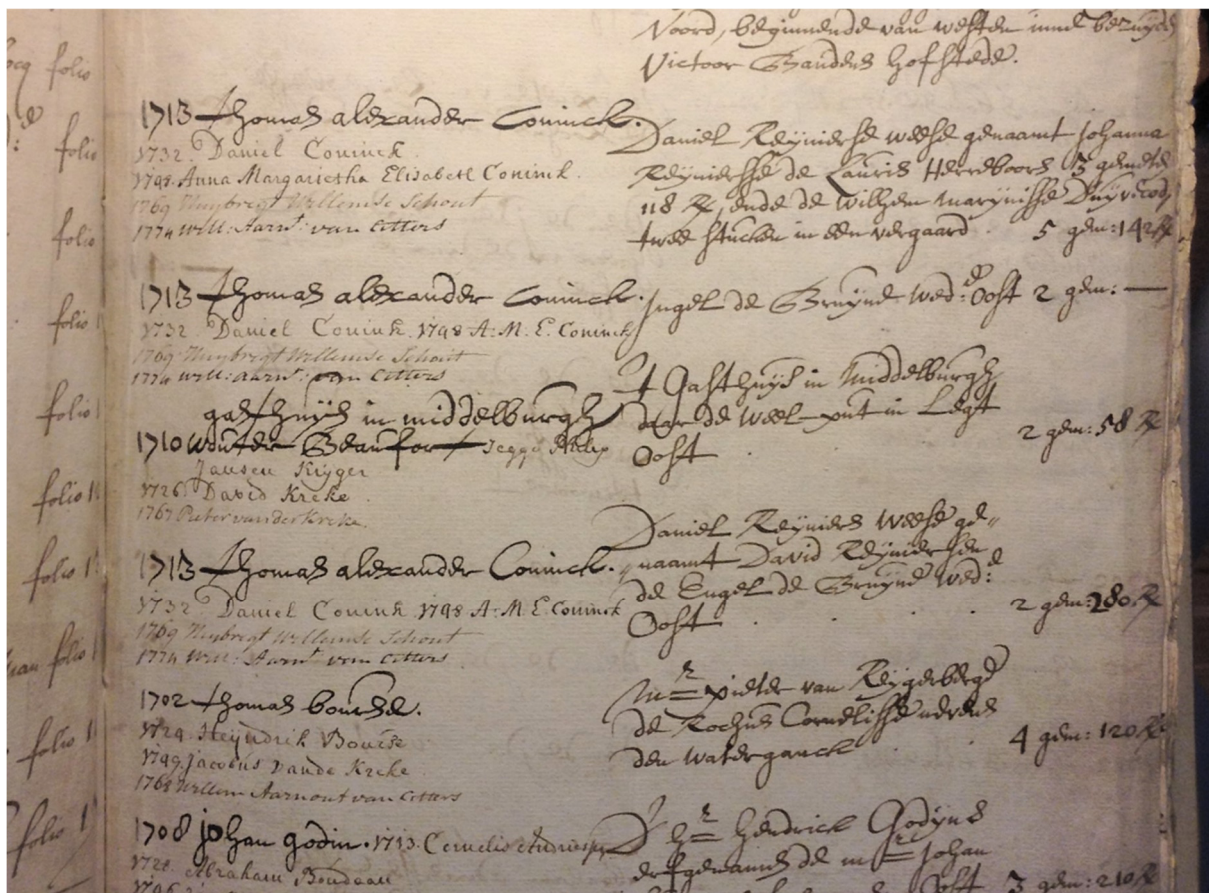 Noord, beginnende van westen inne bezuijden
Victoor Sanders hofstede.
folio
1713 Thomas alexander Coninck.
1732. Daniel Coninck
1748. Anna Margarietha Elisabeth Coninck.
1769 Huybregt Willemse Schout
1774 Will: Aarn:t van Citters
Daniel Reynierse weese genaamt Johanna
Reyniersse de Lauris Herreboors 3 gemeten
118 R, ende de Willem Marynisse Duyvecod,
twee stucken in een vergaard. 5 gem: 142 R
folio
folio
1713 Thomas alexander Coninck.
1732. Daniel Coninck. 1748 A. M. E. Coninck
1769. Huybregt Willemse Schout
1774 Will: Aarn:t van Citters
Ingel de Bruyne wed:e Oost 2 gem: —
folio
gasthuys in middelburgh
1710 Wouter Beaufort
Jansen Kryger
1726 David Kreke
1767 Pieter van der Kreke
't Gasthuys in Middelburgh
daer de Weel-put in Legt
Oost 2 gem: 58 R
folio
folio
1713 Thomas alexander Coninck.
1732. Daniel Coninck. 1748 A. M. E. Coninck
1769 Huybregt Willemse Schout
1774 Will: Aarn:t van Citters
Daniel Reyniers Weese ge„
„naamt David Reyniersen
de Engel de Bruyne Wed:e
Oost 2 gem: 280 R
folio
folio
1702 Thomas bourse.
1729. Heyndrik Bourse
1749 Jacobus vande Kreke
1768 Willem Aarnout van Citters
M:r Pieter van Reygerberge
de Rochus Cornelisse nevens
den waterganck 4 gem: 120 R
folio
folio
1708 johan godin. 1713. Cornelis Andriesse
1728. Abraham Boudaan
D' h:r Hendrick Godyns
erfgenamen de m:r Johan
Oost 3 gem: 210 R